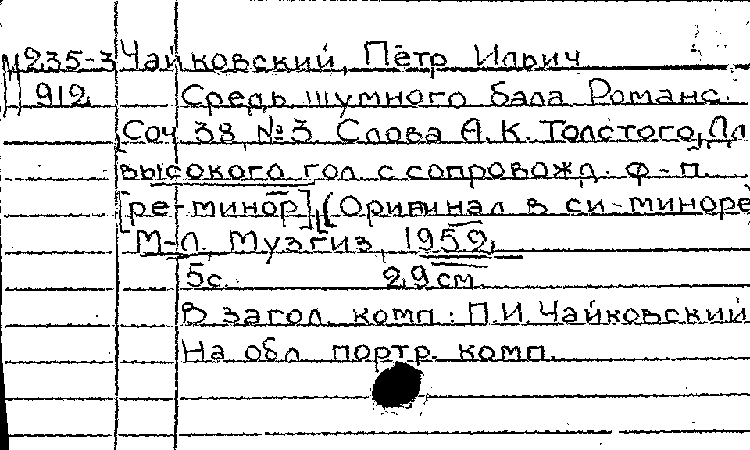 М235-3 Чайковский, Пётр Ильич
912 Средь шумного бала Романс.
Соч 38, №3. Слова А.К. Толстого, Дл
высокого гол с сопровожд. ф-п.
[ре-минор], (Оригинал в си-миноре
М-Л, Музгиз, 1952,
5с. 29 см.
В загол. комп: П.И. Чайковский
На обл портр. комп.